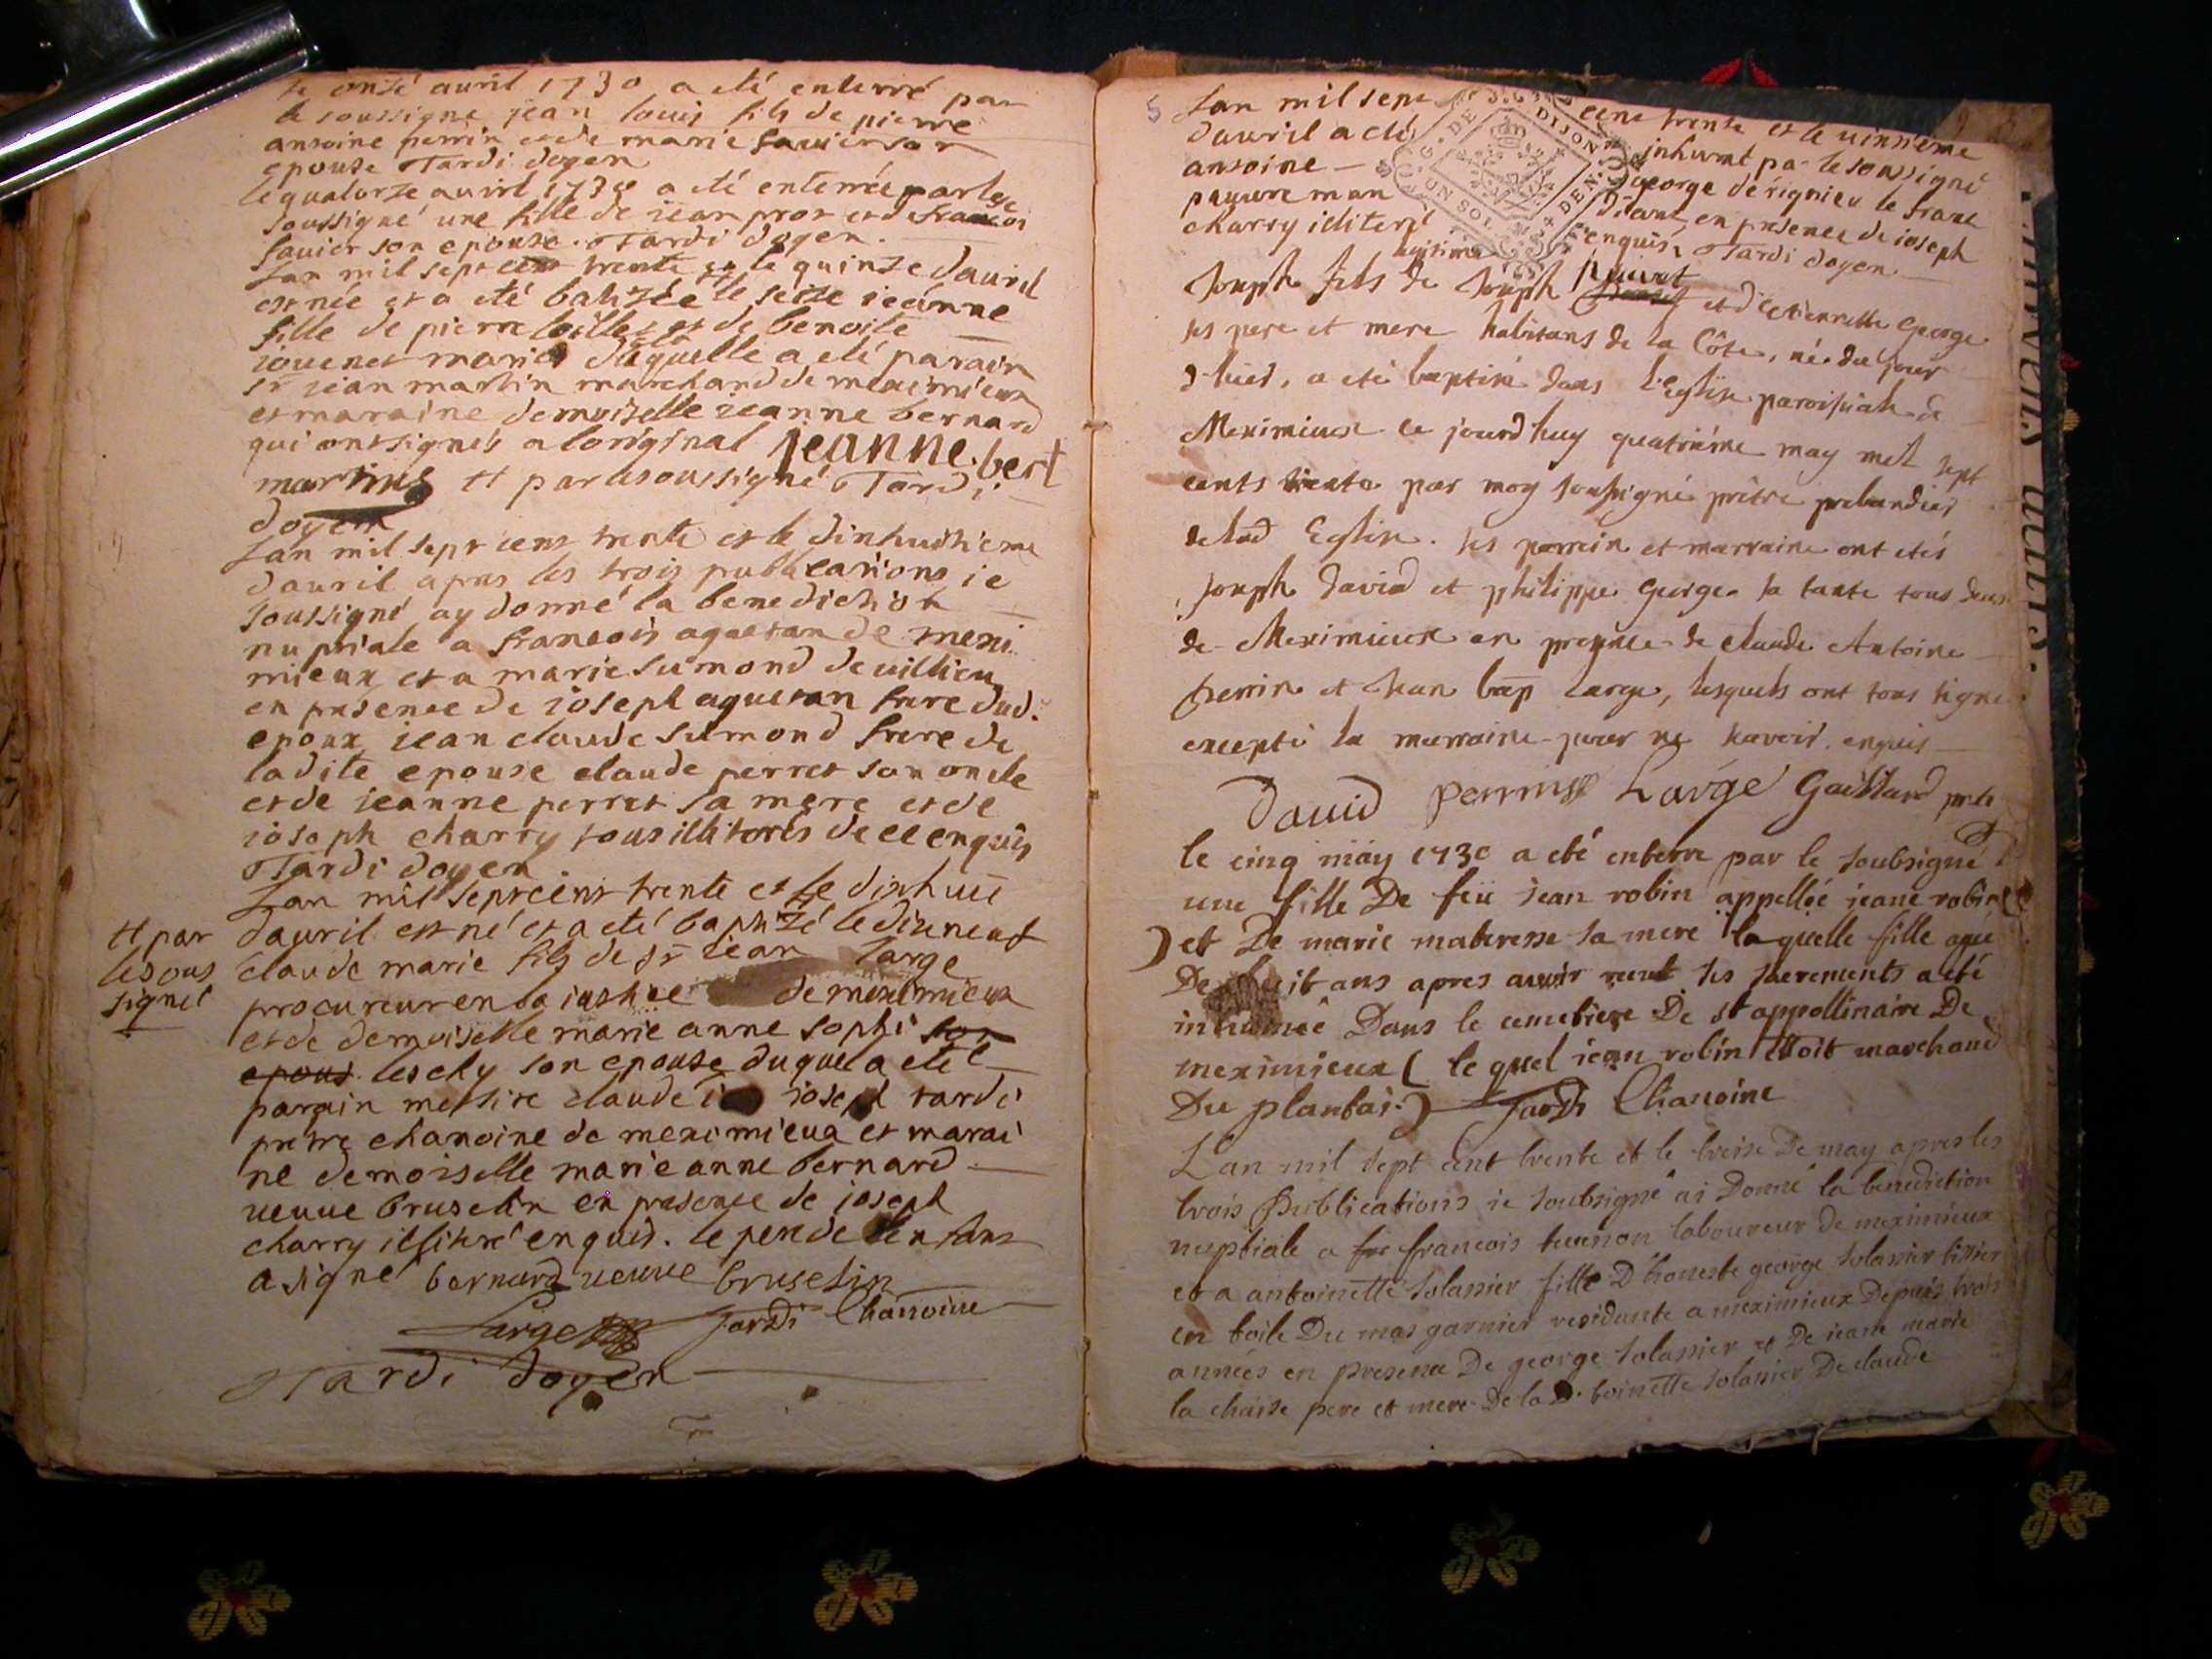 le onze auril 1730 a eté enterré par
le soussigne jean louis fils de pierre
antoine perrin et de marie fauier son
epouse Tardi doyen
le quatorze auril 1730 a eté enterrée par le
soussigné une fille de iean prost et d francois
fauier son epouse. Tardi doyen.
Lan mil sept cent trente et le quinze dauril
est née et a eté batizée le seize ieanne
fille de pierre et de benoite
iouenet mariés de la quelle a eté parain
sr iean martin marchand de meximieux
et maraine demoiselle ieanne bernard
qui ont signés a loriginal jeanne bert
martins et par le soussigné Tardi
doyen
Lan mil sept cent trente et le dixhuitieme
dauril apres les trois publications ie
soussigné ay donné la benediction
nuptiale a francois aguetan de mexi
mieux et a marie sumond de uillieu
en presence de ioseph aguetan frere dud.
epoux, iean claude sumond frere de
ladite epouse claude perret son oncle
et de ieanne perret sa mere et de
ioseph charry tous illiterés de ce enquis
Tardi doyen
Lan mil sept cent trente et le dixhuit
dauril est né et a eté baptizé le dixneuf
tt par
le sous
signé
claude marie fils de sr iean large
procureur en la iustice de meximieux
et de demoiselle marie anne sophi son
epous leschy son epouse duquel a eté
parain messire claude ioseph tardi
pretre chanoine de meximieux et marai
ne demoiselle marie anne bernard
ueuue bruselin en presence de ioseph
charry illiteré enquis. le pere de lenfans
a signé bernard ueuue bruselin
Large Jardi Chanoine
Tardi doyen
5 Lan mil sept cent trente et le uintieme
dauril a eté inhumé par le soussigné
antoine george de rignieu le franc
pauure man diant, en presence de ioseph
charry illiteré enquis Tardi doyen
legitime
Joseph fils de Joseph et d'etiennette George
ses pere et mere habitans de la Côte, né du jour
d'hier, a eté baptisé dans l'Eglise paroissiale de
Meximieux ce jourd'huy quatrième may mil sept
cents trente par moy soussigné prêtre prebandier
de lad Eglise. ses parrein et marraine ont etés
Joseph David et philippe George sa tante tous deux
de Meximieux en presence de claude Antoine
perrin et Jean bap large, lesquels ont tous signe
excepté la marraine pour ne scavoir enquis
David perrin Large Gaillard prte
le cinq may 1730 a eté enterre par le soubsigné
une fille De feü iean robin appellée ieane robin
) et De marie materesse sa mere laquelle fille agée
De huit ans apres auoir receut ses sacrements a eté
inhumée Dans le cimetiere De st appollinaire De
meximieux ( le quel iean robin Etoit marchand
Du plantai.) Jardi Chanoine
L'an mil sept cent trente et le treise De may apres les
trois Publications ie soubsigné ai Donné la benediction
nuptiale a fra francois laboureur De meximieux
et a antoinette solassier fille D'honeste george solassier tissier
en toile Du mas garnier residante a meximieux Depuis trois
années en presence De george solassier et De ieane marie
la chaise pere et mere De la D. toinette solassier De claude